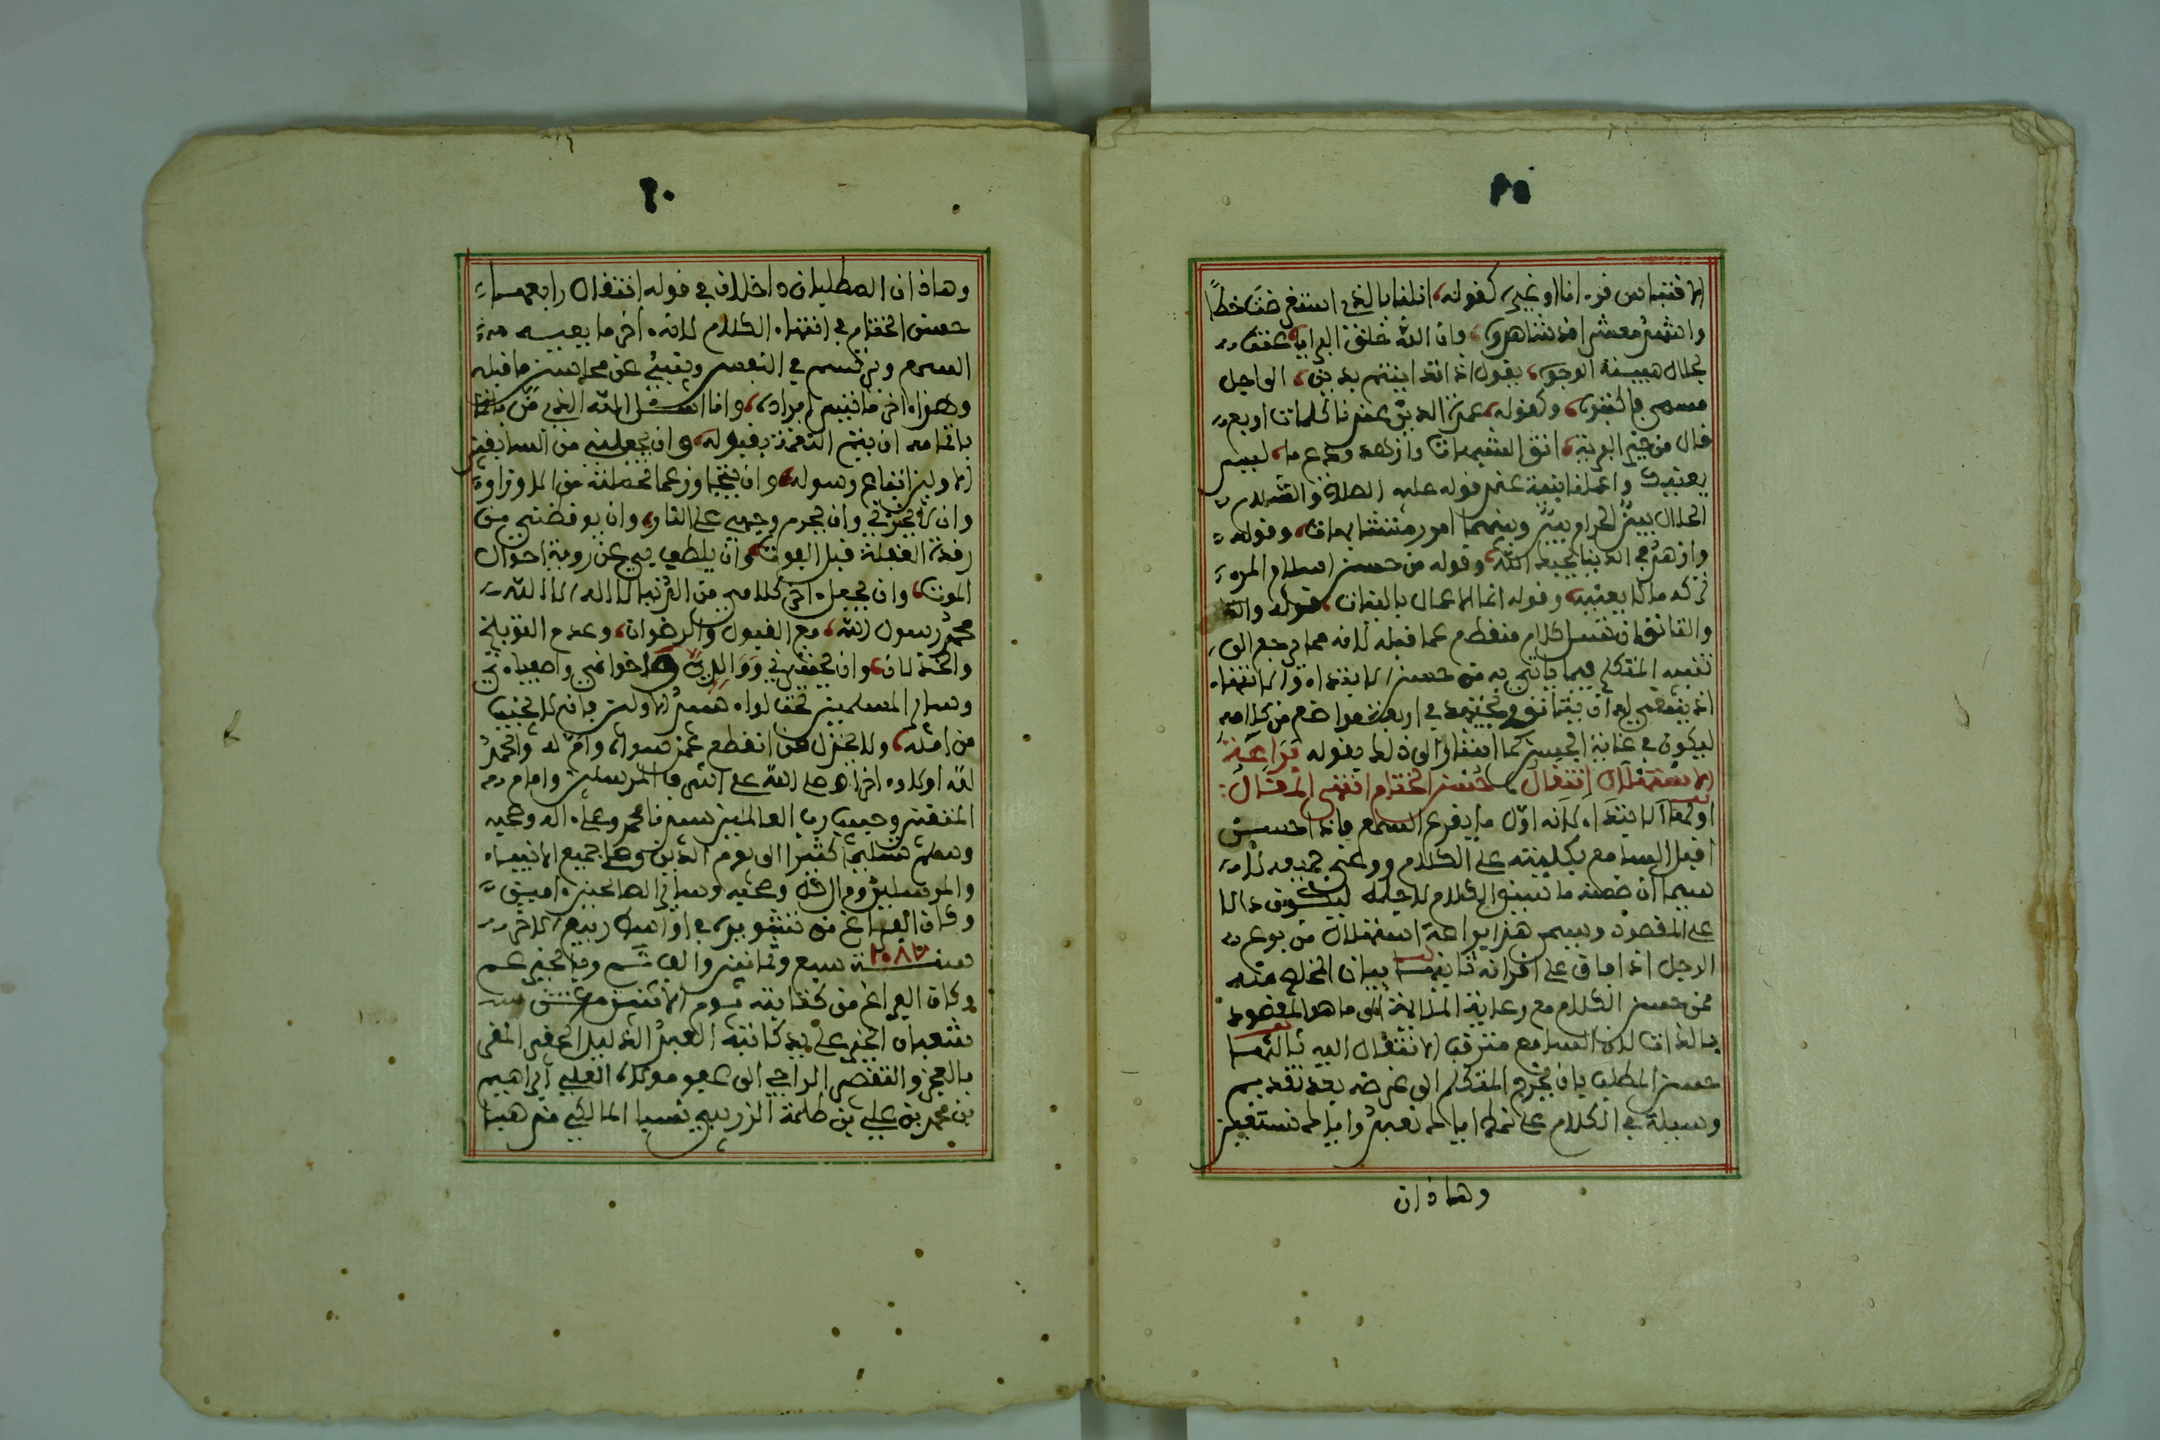 الاقتباس من قرءان او غيره كقوله، انلنا بالذى استقرض خطا
واشهد معشرا قد شاهدوه، فان الله خلاق البرايا، عنت
لجلال هيبته الوجوه، يقول اذا تداينتم بدين، الى اجل
مسمى فاكتبوه، وكقوله، عمدة الدين عندنا كلمات اربع
قال من خير البرية، اتق الشبهات وازهد ودع ما، ليس
يعنيك واعملن بنية عند قوله عليه الصلاة والسلام
الحلال بين الحرام بين وبينهما امور متشابهات، وقوله
وازهد في الدنيا يحبك الله، وقوله من حسن اسلام المرء
تركه ما لا يعنيه، وقوله انما الاعمال بالنيات، قوله والتا
والتانق ان نفس كلام منقطع عما قبله لانه مما يرجع الى
نفسه المتكلم فيما ياتي به من حسن الابتداء والانتهاء
اذ ينبغي له ان يتانق ويجتهد في اربعة مواضع من كلامه
ليكون في غاية الحسن كما اشار الى ذلك بقوله بَرَاعَةِ
الاستهلال انتقال حسن الختام انتهى المقال
اولها الابتداء لانه اوّل ما يقرع السمع فاذا حسن
اقبل السامع بكليته على الكلام ووعى جميعه لا
سيما ان ضمنه ما سيق الكلام لاجله ليكون دالا
على المقصود وسمى هذا براعة استهلال من برع
الرجل اذا فاق على اقرانه ثانيهما بيان المخلص منه
من حسن الكلام مع رعاية الملاءمة الى ما هو المقصود
بالذات لان السامع مترقب الانتقال اليه ثالثهما
حسن المطلب بان يخرج المتكلم الى غرضه بعد تقديم
وسيلة في الكلام على نمط اياك نعبد واياك نستعين
وهاذان
٢٠
وهاذان المطلبان داخلان في قوله انتقال رابعهما
حسن الختام في انتهاء الكلام لانه ءاخر ما يعيه
السمع ويرتسم في النفس وينبئ عن محاسن ما قبله
وهذا ءاخر ما تيسر ايراده، وانا اسئل الله الذى من علينا
باتمامه ان يتم النعمة بقبوله، وان يجعلني من السابقين
الاولين اتباع رسوله، وان يتجاوز عما تحملته من الاوزار
وان لا يخزني وان يحرم وجهي على النار، وان يوقظني من
رقدة الغفلة قبل الفوت، وان يلطف بي عند روية احوال
الموت، وان يجعل ءاخر كلامي من الدنيا لا اله الا الله
محمد رسول الله، مع القبول والرضوان، وعدم التوبيخ
والخذلان، وان يحشرني ووالدي واخواني واصحابي
وساير المسلمين تحت لواء سيد الاولين فانه لا يخيب
من امله، ولا يخذل من انقطع عمن سواه، وام له والحمد
لله اولا وءاخرا وصلى الله على اشرف المرسلين وامام
المتقين وحبيب رب العالمين سيدنا محمد وعلى ءاله وصحبه
وسلم تسليما كثيرا الى يوم الدين وعلى جميع الانبياء
والمرسلين وءال كل وصحبه وساير الصالحين ءامين
وكان الفراغ من تسويده في اواسط ربيع الاخر
سنة ١٠٨٧ سبع وثمانين والف تم وبالخير عم
وكان الفراغ من كتابته يوم الاثنين
شعبان الخير على يد كاتبه العبد الذليل الحقير المقر
بالعجز والتقصير الراجي الى عفو مولاه العلي ابراهيم
بن محمد بن علي بن طلحة الزريبي نسبا المالكي مذهبا